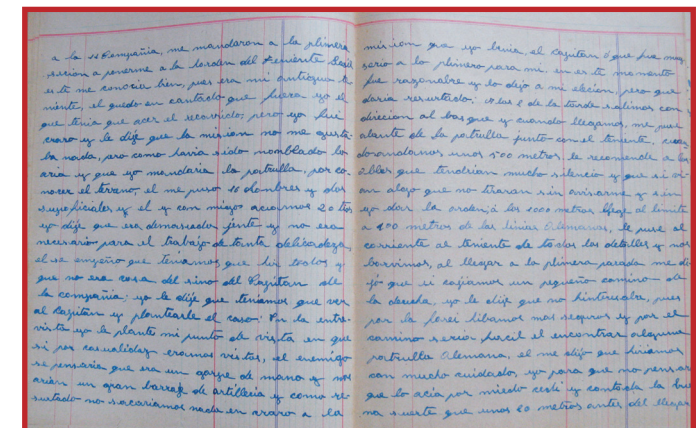 a la 11 Compañia, me mandaron a la plimera
secion a ponerme a la horden del teniente
es te me conocia bien, pues era mi antiguo te
niente, el quedo en cantado que fuera yo el
que tenia que acer el recorrido, pero yo fui
craro y le dije que la mision no me gusta
ba nada, pero como havia sido nomblado lo
aria y que yo mandaria la patrulla, por co
nocer el terreno, el me puso 16 hombres y dos
suyoficiales y el y con migo aciamos 20 tios
yo dije que era demasiada jente y no era
necesario para el trabajo de tanta delicadeza,
el se empeño que teniamos que hir todos y
que no era cosa del sino del Capitan de
la compañia, yo le dije que teniamos que ver
al Capitan y plantearle el caso: En la entre
vista yo le plante mi punto de vista en que
si por casualidaz eramos vistos, el enemigo
se pensaria que era un gorpe de mano y nos
arian un gran barrage de artilleria y como re
surtado no sacariamos nada en craro a la
mision que yo tenia, el Capitan o que fue muy
serio a lo plimero para mi en es te momento
fue razonabre y lo dejo a mi elecion, pero que
daria resurtado: A las 2 de la tarde salimos con
direcion al bosque y cuando llegamos, me puse
alante de la patrulla junto con el teniente,
unos 500 metros le recomende a los
que tendrian mucho silencio y que si oi
an algo que no tiraran sin avisarme y sin
yo dar la orden, a los 1000 metros llegé al limite
a 400 metros de las linias Alemanas, le puse al
corriente al teniente de todos los detalles y nos
, al llegar a la plimera parada me di
jo que si cojiamos un pequeño camino de
la derecha, yo le dije que no hinteresaba, pues
por la ibamos mas seguros y por el
camino seria facil el encontrar alguna
patrulla Alemana, el me dijo que hiriamos
con mucho cuidado, yo para que no pensar
que lo acia por miedo cedi y contoda la bue
na suerte que unos 20 metros antes del llegar